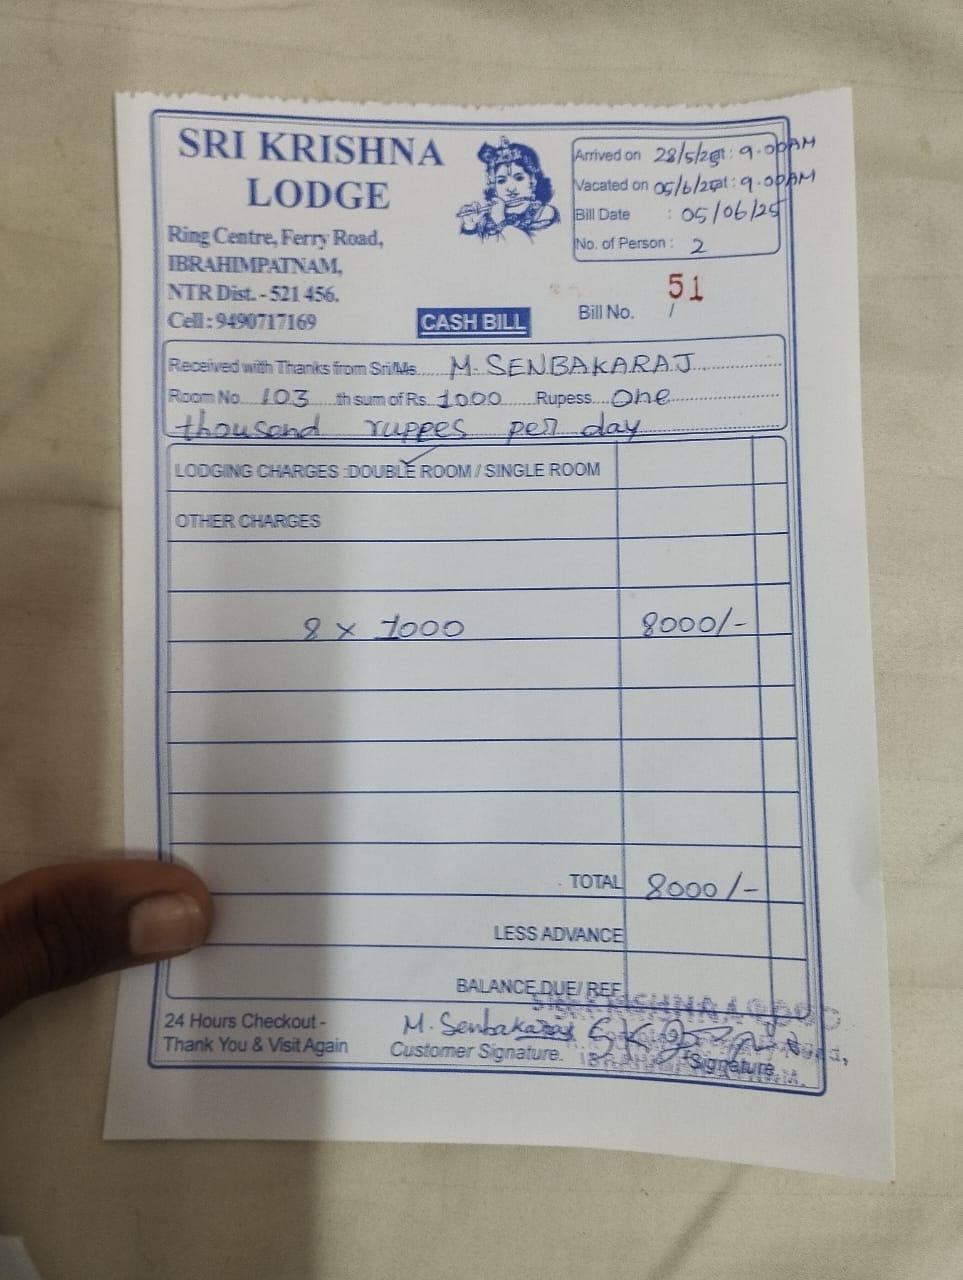 SRI KRISHNA
LODGE
Ring Centre, Ferry Road,
IBRAHIMPATNAM,
NTR Dist. - 521 456.
Cell : 9490717169
Arrived on 28/5/25 at : 9.00AM
Vacated on 05/6/25 at : 9.00AM
Bill Date : 05/06/25
No. of Person : 2
CASH BILL
Bill No. 51
Received with Thanks from Sri/Ms. M. SENBAKARAJ
Room No. 103 th sum of Rs. 1000 Rupess one
thousend ruppes per day
LODGING CHARGES :DOUBLE ROOM / SINGLE ROOM
OTHER CHARGES
8 x 1000 8000/-
TOTAL 8000/-
LESS ADVANCE
BALANCE DUE/ REF
24 Hours Checkout -
Thank You & Visit Again
M. Senbakaraj
Customer Signature.
Signature